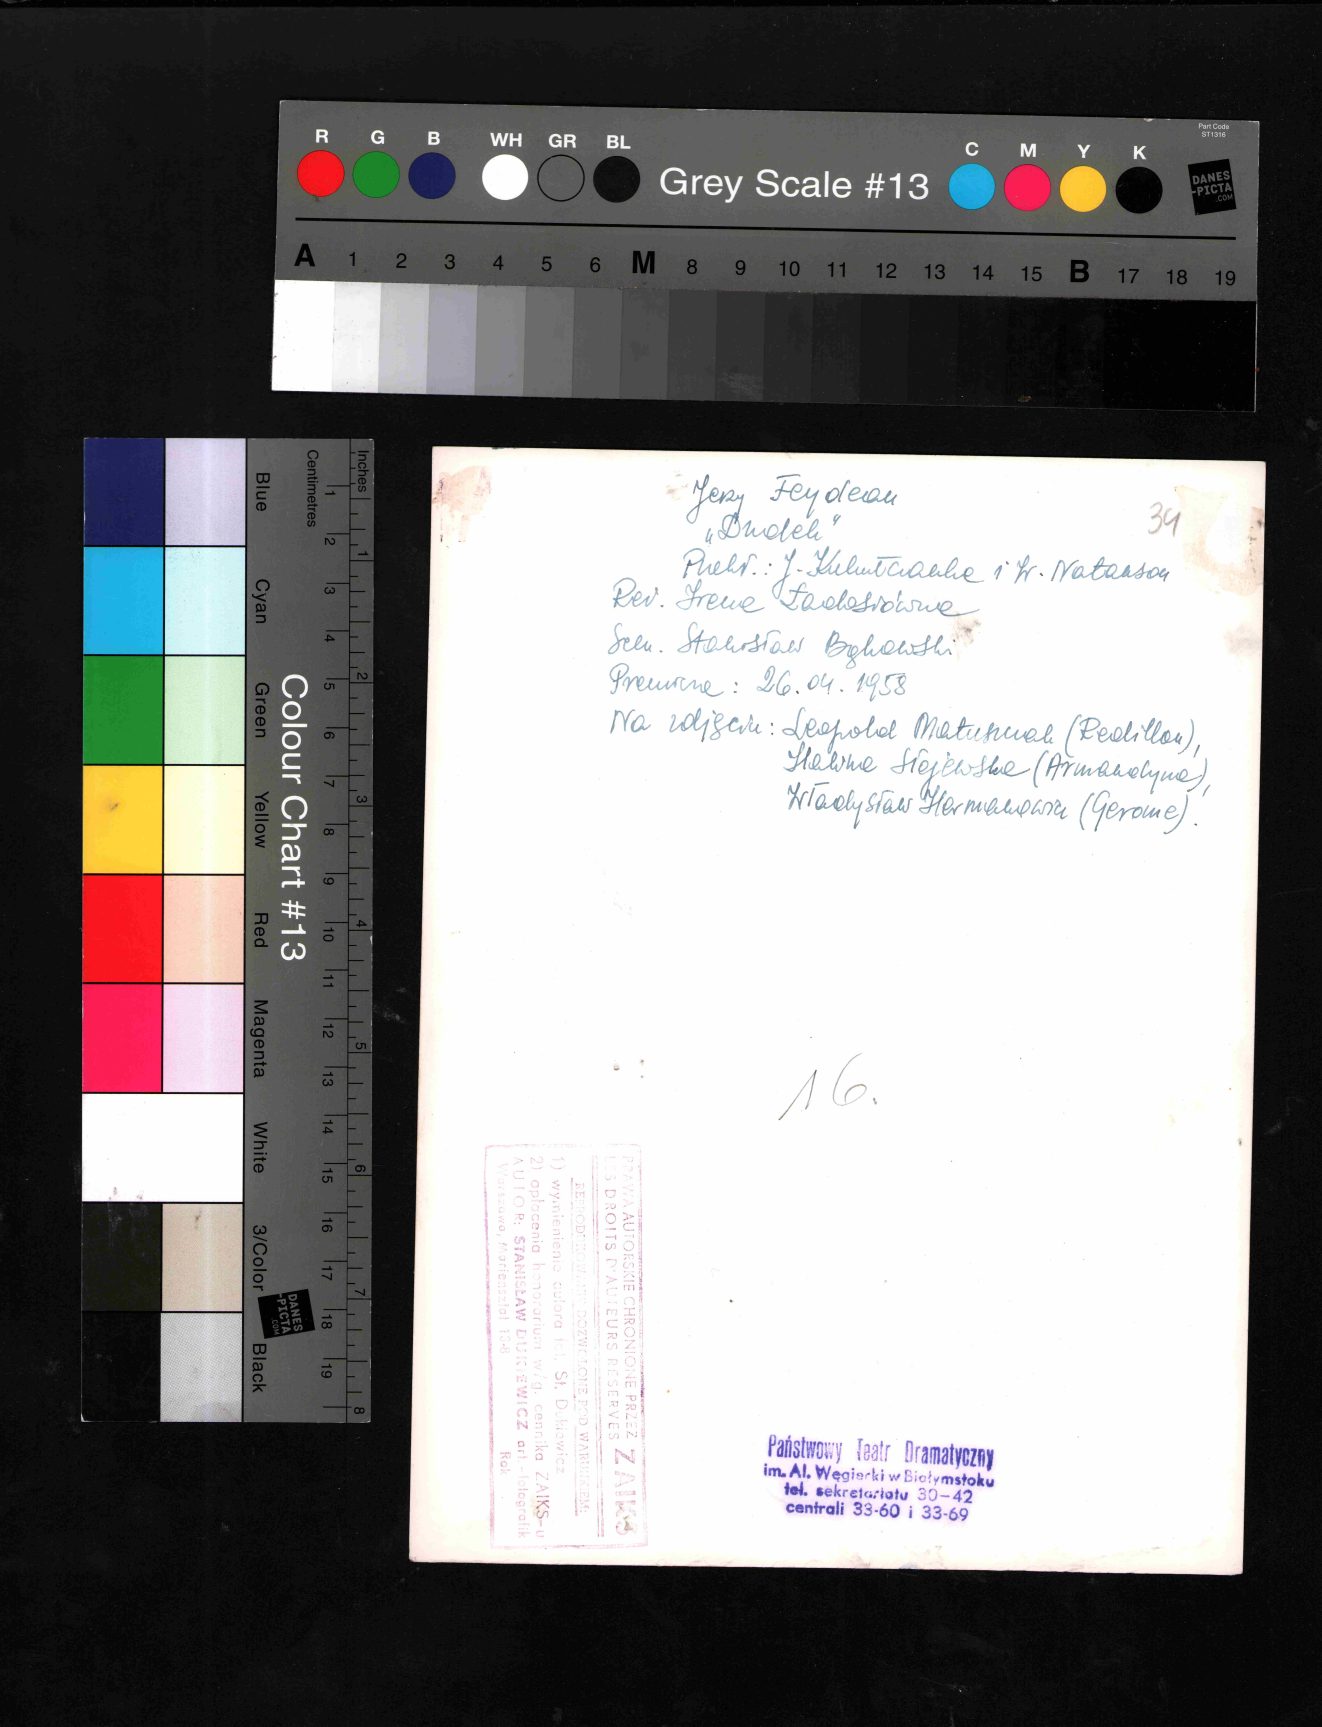 R G B WH GR BL Grey Scale #13 C M Y K
Part Code
ST1316
DANES
-PICTA
.COM
A 1 2 3 4 5 6 M 8 9 10 11 12 13 14 15 B 17 18 19
Colour Chart #13
Blue Cyan Green Yellow Red Magenta White 3/Color Black
Centimetres 1 2 3 4 5 6 7 8 9 10 11 12 13 14 15 16 17 18 19
Inches 1 2 3 4 5 6 7 8
DANES
-PICTA
.COM
Jerzy Feydeau
34
„Dudek"
Przekł.: J. i W. Natanson
Reż. Irena Ładosiówna
Scen. Stanisław Bąkowski
Premiera: 26.04.1958
Na zdjęciu: Leopold Matuszczak (Redillon),
Halina (Armandyna),
Władysław (Gerome).
16.
PRAWA AUTORSKIE CHRONIONE PRZEZ ZAIKS
LES DROITS D'AUTEURS RESERVES
REPRODUKOWANIE DOZWOLONE POD WARUNKIEM:
1) wymienienia autora fot. St. Dukiewicz
2) opłacenia honorarium w/g. cennika ZAIKS-u
AUTOR: STANISŁAW DUKIEWICZ art.-fotografik
Warszawa, Mariensztat
Rok
Państwowy Teatr Dramatyczny
im. Al. Węgierki w Białymstoku
tel. sekretariatu 30-42
centrali 33-60 i 33-69